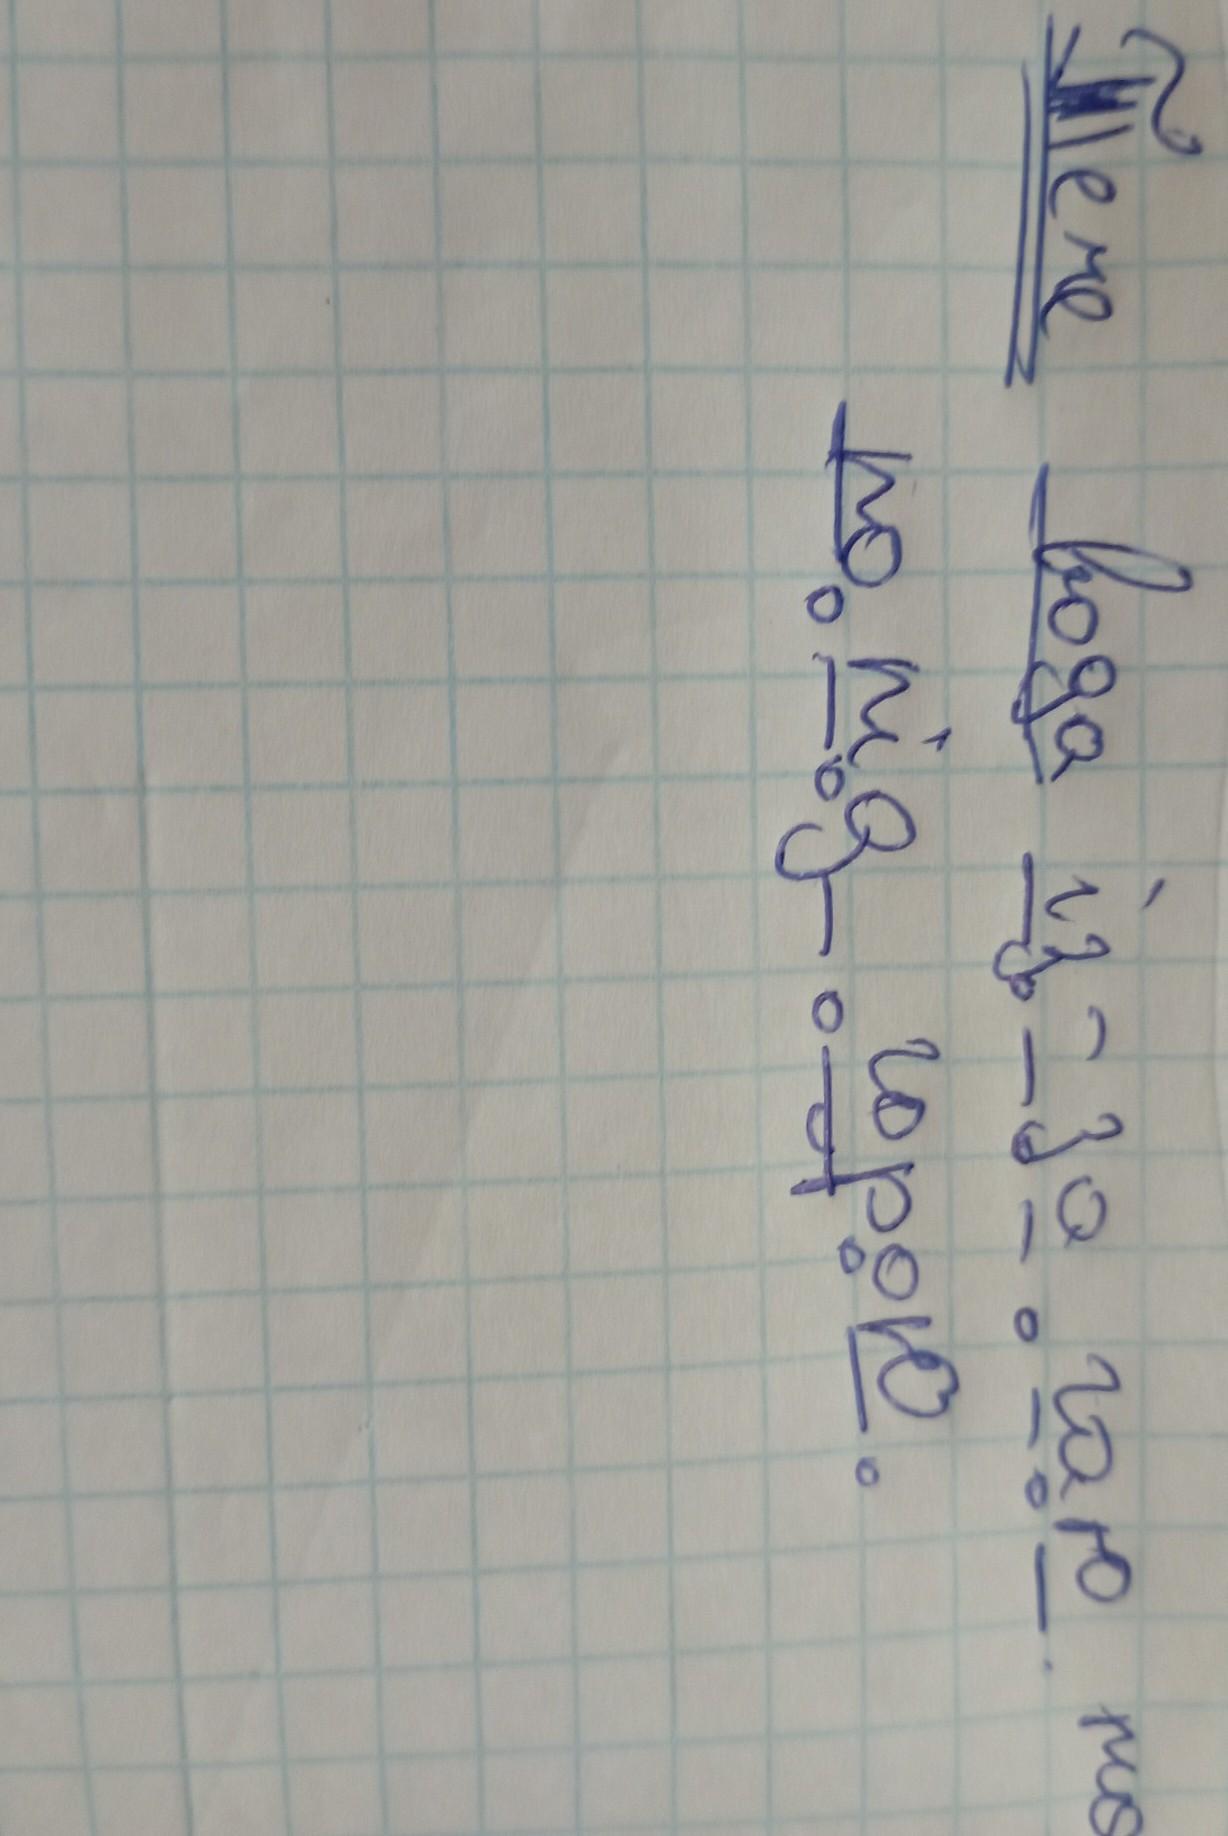 Тече вода із-за гаю та
попід горою.